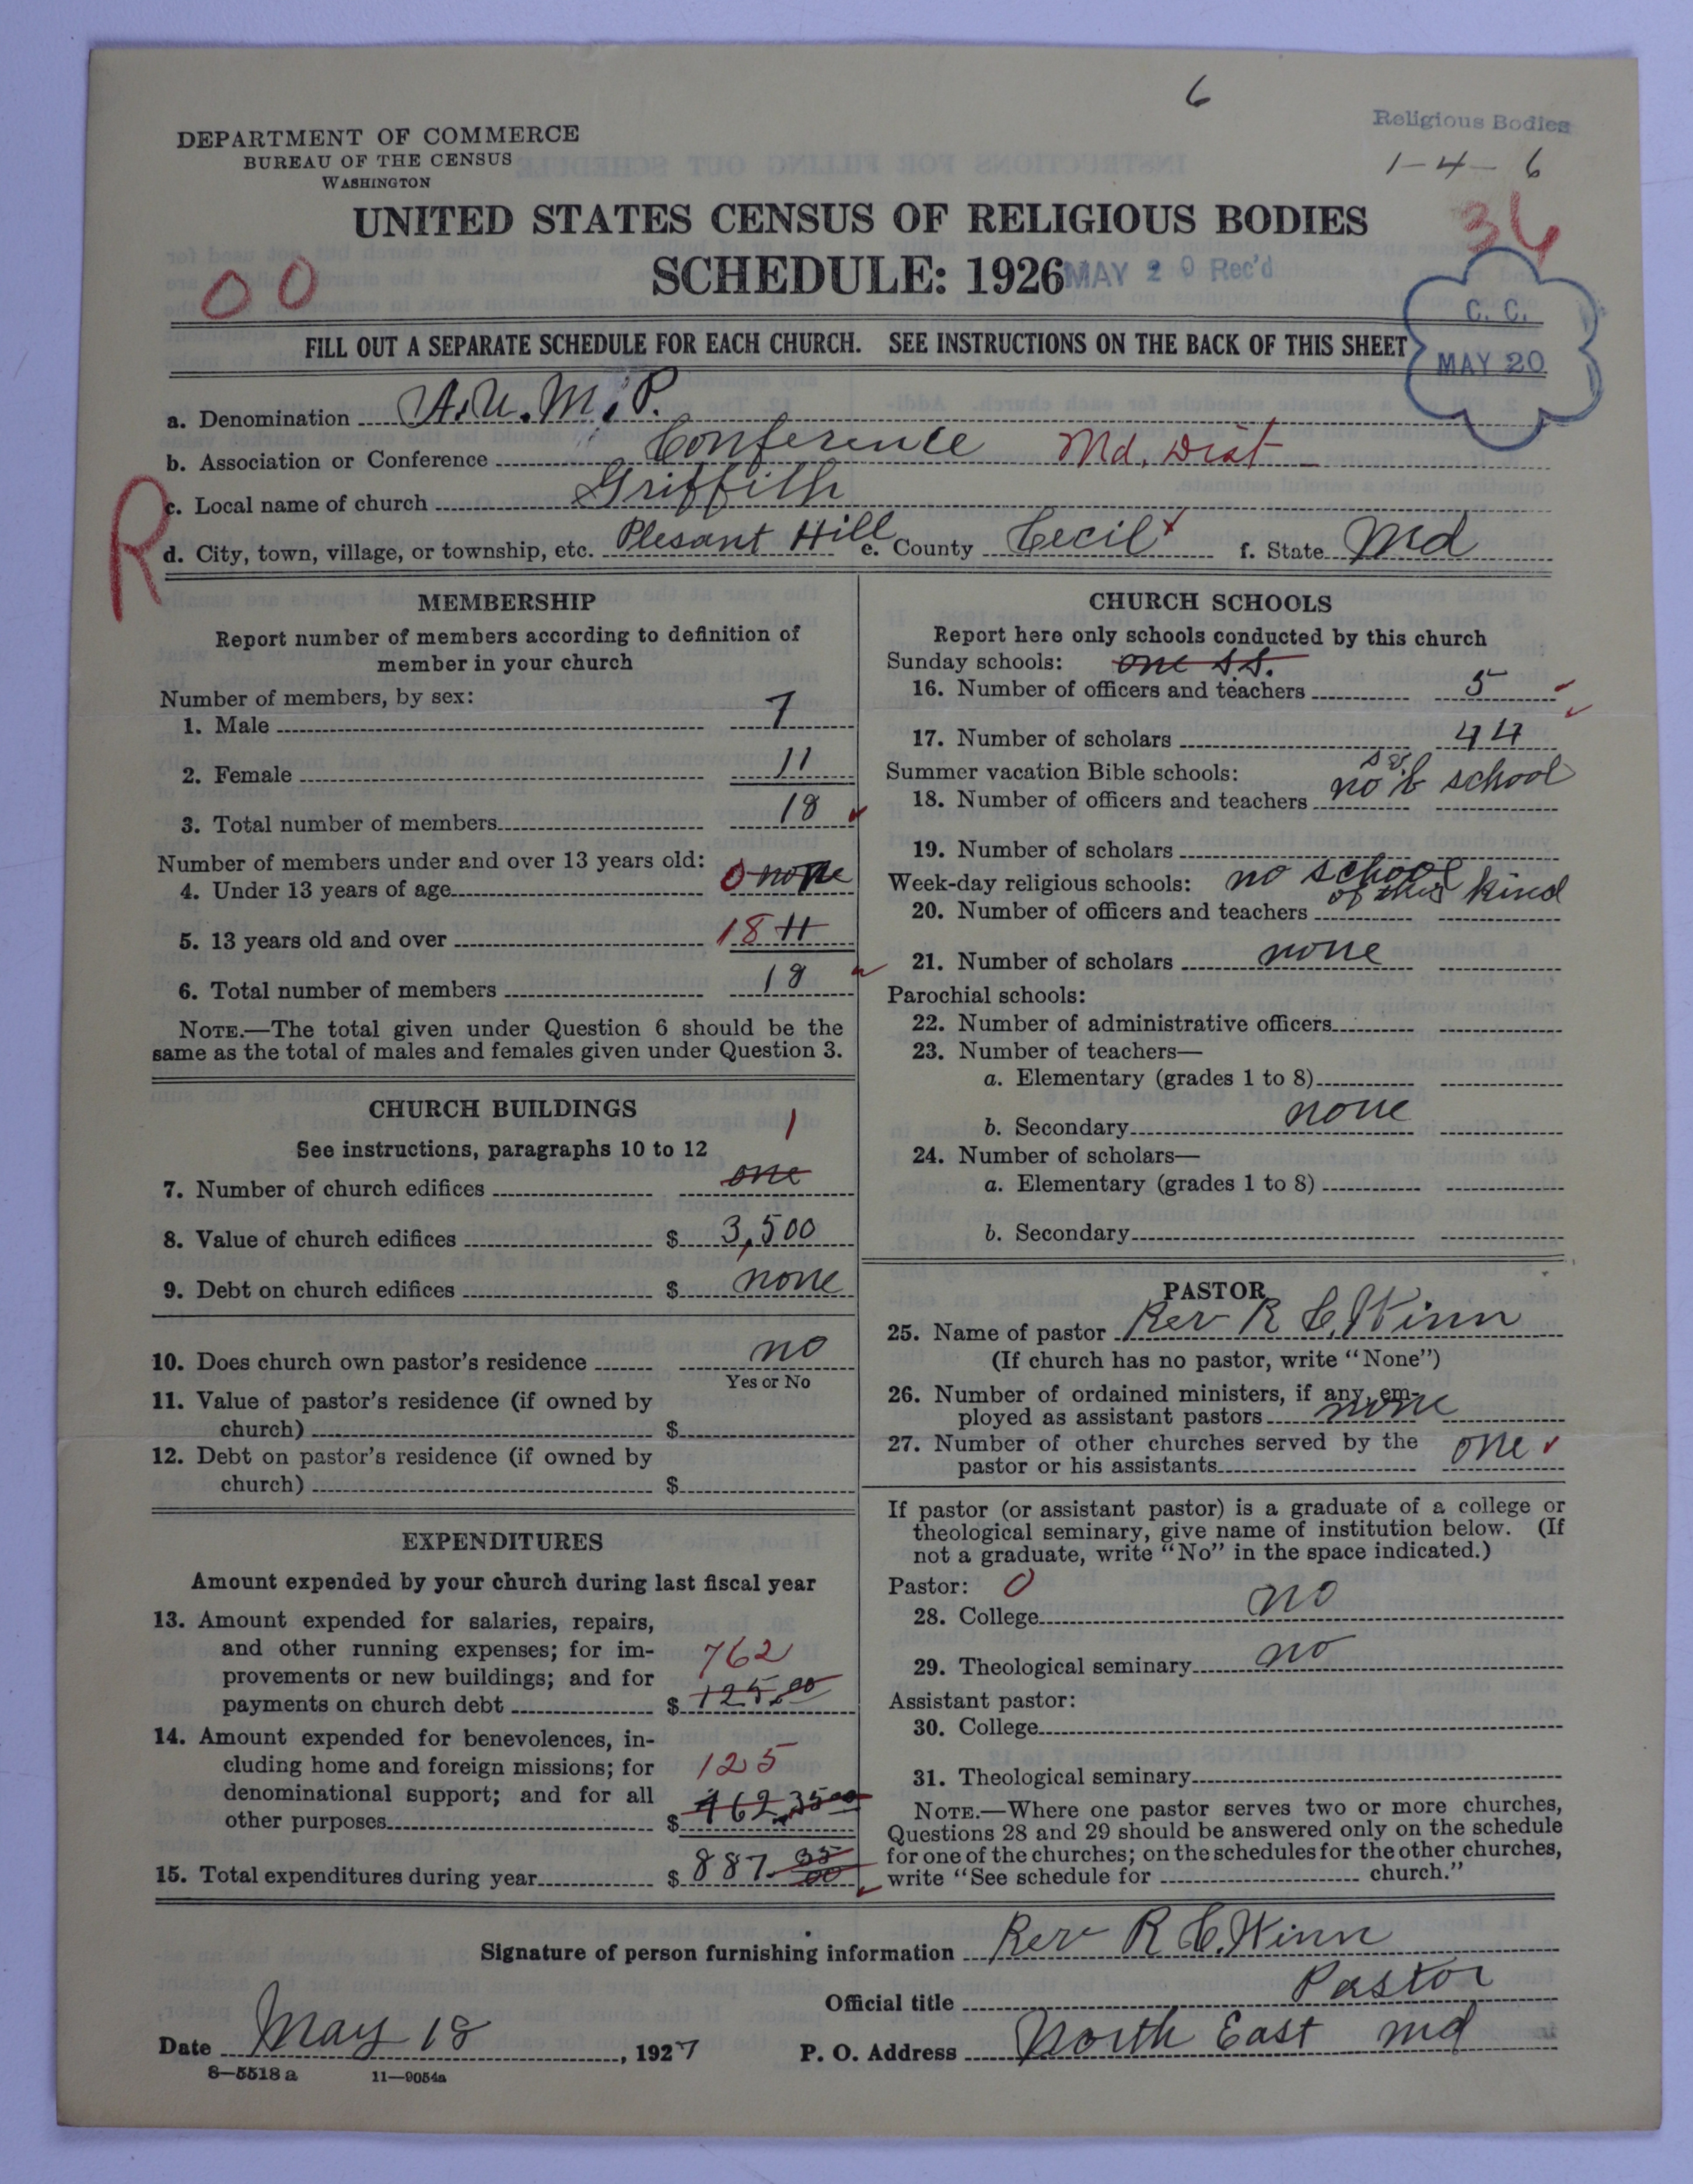 6
Religious Bodies
1-4-6
DEPARTMENT OF COMMERCE
BUREAU OF THE CENSUS
WASHINGTON
UNITED STATES CENSUS OF RELIGIOUS BODIES
36
SCHEDULE: 1926
MAY 20 Rec'd
00
C. C.
MAY 20
FILL OUT A SEPARATE SCHEDULE FOR EACH CHURCH. SEE INSTRUCTIONS ON THE BACK OF THIS SHEET
a. Denomination A.U.M.P.
b. Association or Conference Conference Md. Dist
R
c. Local name of church Griffith
d. City, town, village, or township, etc. Plesant Hill e. County Cecil f. State Md
MEMBERSHIP
Report number of members according to definition of
member in your church
Number of members, by sex:
1. Male 7
2. Female 11
3. Total number of members 18
Number of members under and over 13 years old:
4. Under 13 years of age 0 none
5. 13 years old and over 18 11
6. Total number of members 18
NOTE.—The total given under Question 6 should be the
same as the total of males and females given under Question 3.
CHURCH BUILDINGS
See instructions, paragraphs 10 to 12
1
7. Number of church edifices one
8. Value of church edifices $ 3,500
9. Debt on church edifices $ none
10. Does church own pastor's residence no
Yes or No
11. Value of pastor's residence (if owned by
church) $
12. Debt on pastor's residence (if owned by
church) $
EXPENDITURES
Amount expended by your church during last fiscal year
13. Amount expended for salaries, repairs,
and other running expenses; for im-
provements or new buildings; and for 762
payments on church debt $ 125.00
14. Amount expended for benevolences, in-
cluding home and foreign missions; for 125
denominational support; and for all
other purposes $ 762
15. Total expenditures during year $ 887
CHURCH SCHOOLS
Report here only schools conducted by this church
Sunday schools: one S.S.
16. Number of officers and teachers 5
17. Number of scholars 44
Summer vacation Bible schools:
18. Number of officers and teachers no school
19. Number of scholars
Week-day religious schools: no school
of this kind
20. Number of officers and teachers
21. Number of scholars none
Parochial schools:
22. Number of administrative officers
23. Number of teachers—
a. Elementary (grades 1 to 8)
b. Secondary none
24. Number of scholars—
a. Elementary (grades 1 to 8)
b. Secondary
PASTOR
25. Name of pastor Rev R C. Winn
(If church has no pastor, write "None")
26. Number of ordained ministers, if any, em-
ployed as assistant pastors none
27. Number of other churches served by the
pastor or his assistants one
If pastor (or assistant pastor) is a graduate of a college or
theological seminary, give name of institution below. (If
not a graduate, write "No" in the space indicated.)
Pastor: 0
28. College no
29. Theological seminary no
Assistant pastor:
30. College
31. Theological seminary
NOTE.—Where one pastor serves two or more churches,
Questions 28 and 29 should be answered only on the schedule
for one of the churches; on the schedules for the other churches,
write "See schedule for church."
Signature of person furnishing information Rev R C. Winn
Official title Pastor
Date May 18, 1927 P. O. Address North East Md
8—5518 a 11—9054a